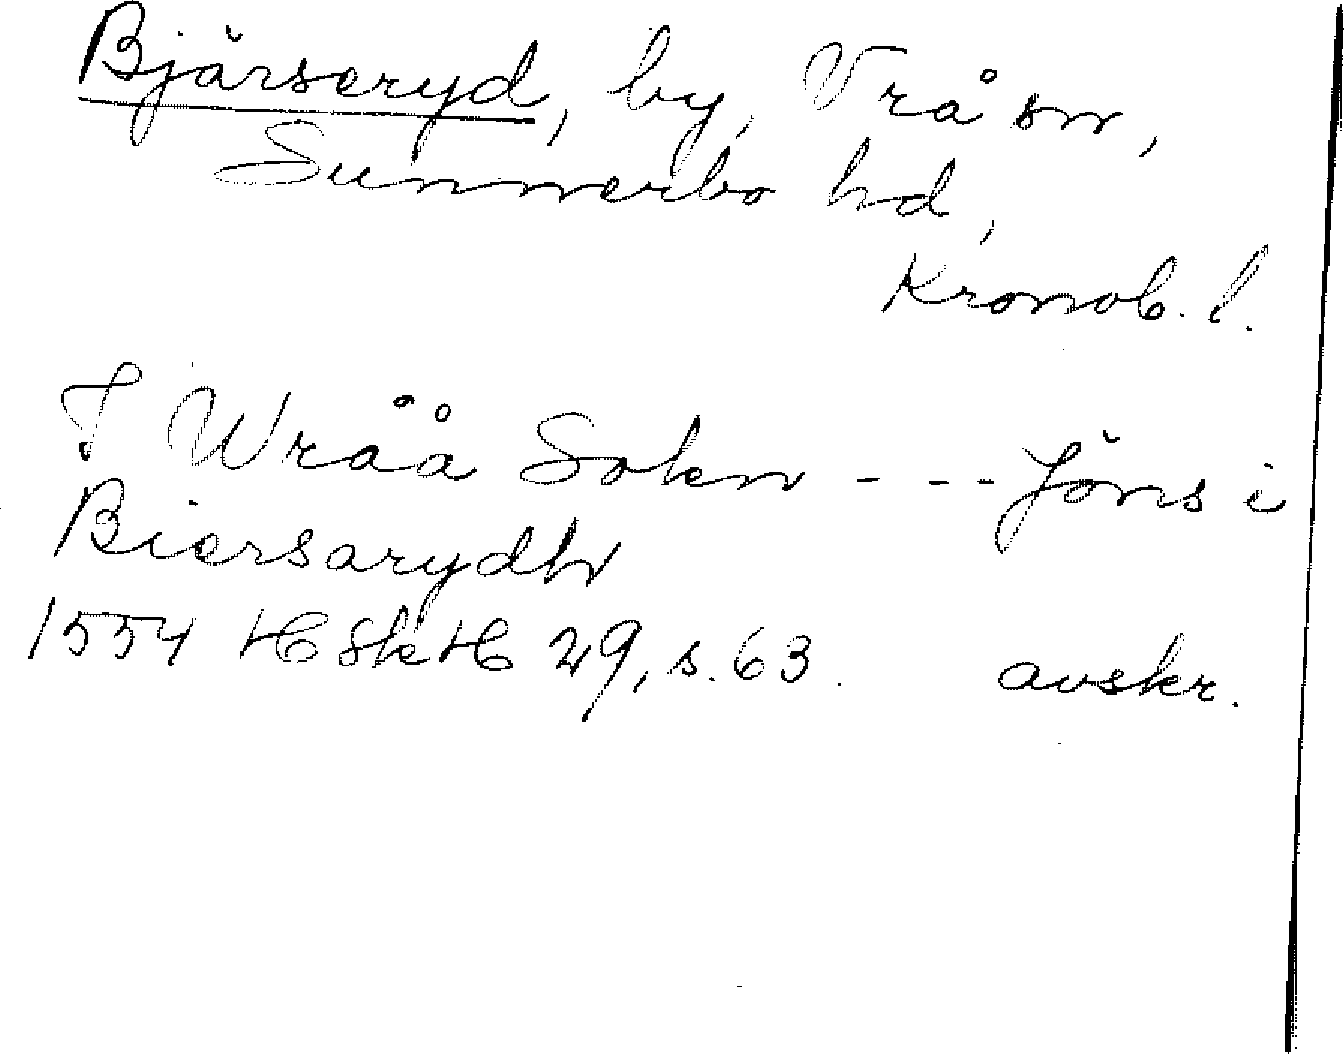 Bjärseryd, by, Vrå sn,
Sunnerbo hd,
Kronob. l.
I Wråå Sokn - - - Jöns i
Biersarydh
1554 HSkH 29, s. 63. avskr.